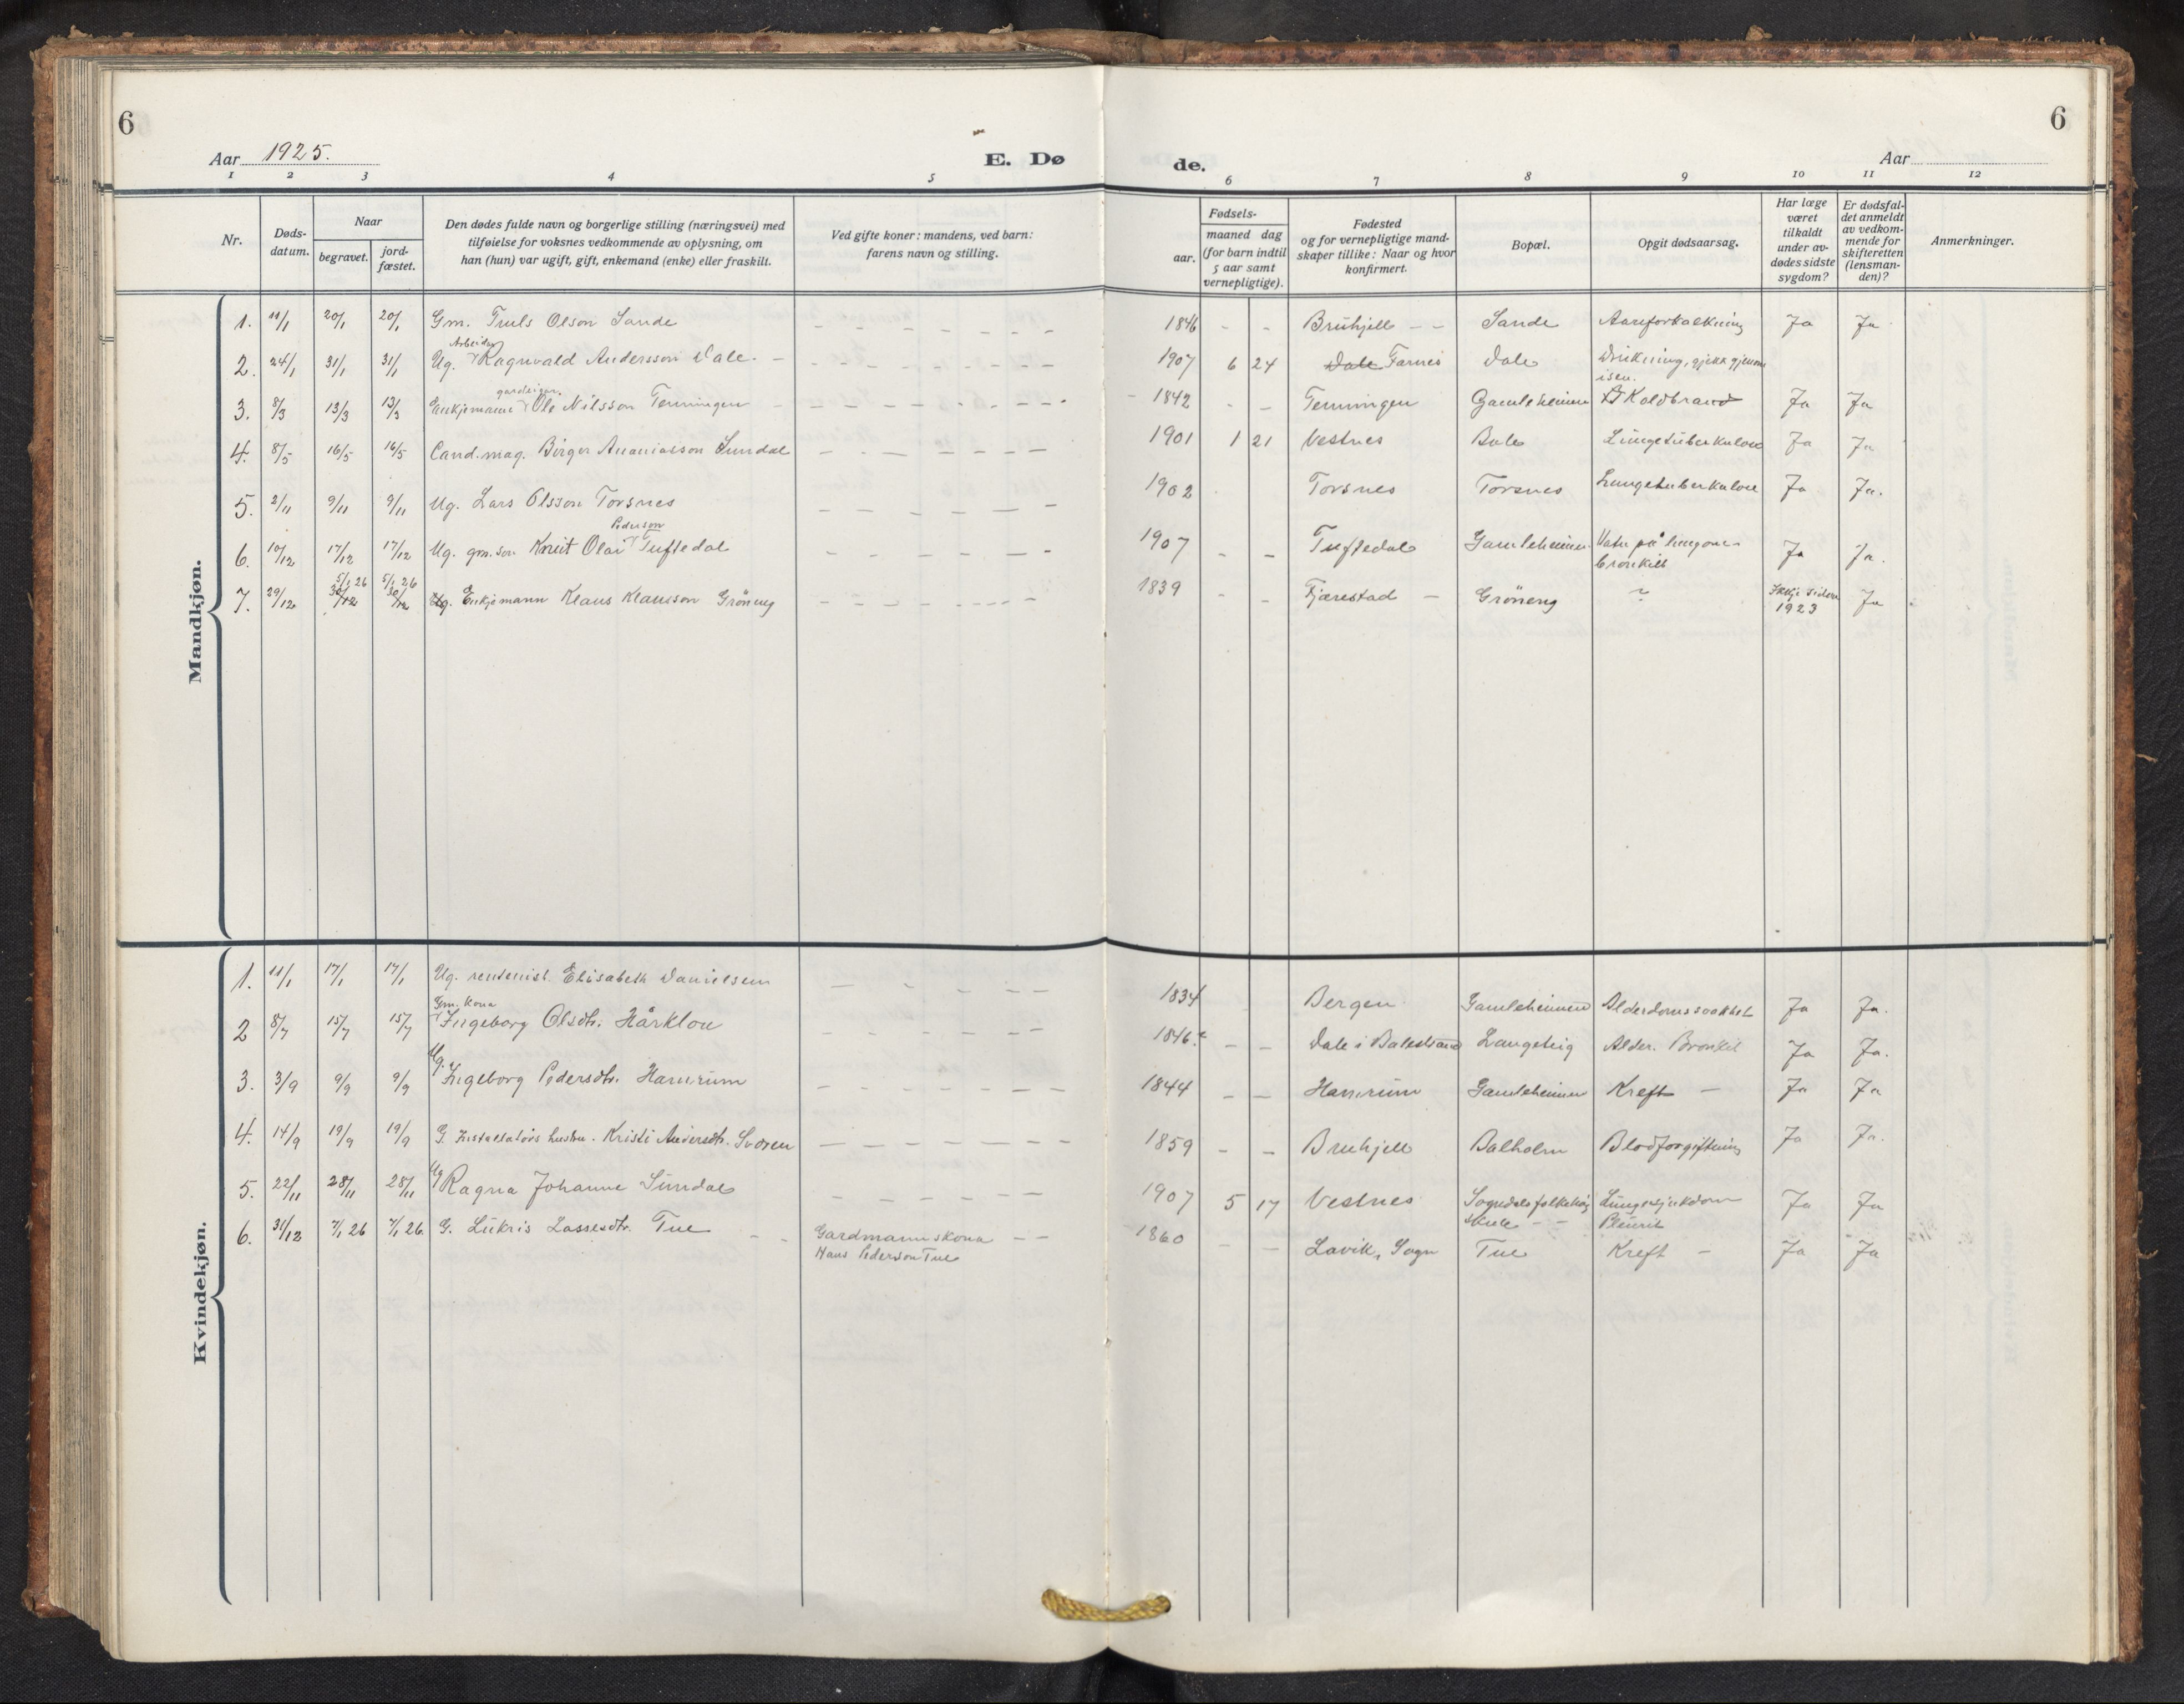 6
6
Aar 1925.
E. Dø
de.
Aar
1 2 3 4 5 6 7 8 9 10 11 12
Nr.
Døds-datum.
Naar
begravet.
jord-fæstet.
Den dødes fulde navn og borgerlige stilling (næringsvei) med
tilføielse for voksnes vedkommende av oplysning, om
han (hun) var ugift, gift, enkemand (enke) eller fraskilt.
Ved gifte koner: mandens, ved barn:
farens navn og stilling.
Fødsels-
aar.
maaned dag
(for barn indtil
5 aar samt
vernepligtige).
Fødested
og for vernepligtige mand-
skaper tillike: Naar og hvor
konfirmert.
Bopæl.
Opgit dødsaarsag.
Har læge
været
tilkaldt
under av-
dødes sidste
sygdom?
Er dødsfal-
det anmeldt
av vedkom-
mende for
skifteretten
(lensman-
den)?
Anmerkninger.
Mandkjøn.
1. 11/1 20/1 20/1 Gm. Truls Olson Sande 1846 - - Bruhjell - - Sande Aareforkalkning Ja Ja
Arbeider
2. 24/1 31/1 31/1 Ug. Ragnvald Andersson Dale. - 1907 6 24 Dale Farnes Dale Drukning, gjekk gjenom
isen.
gardeigar
3. 8/3 13/3 13/3 Enkjemann Ole Nilsson Tenningen 1842 - - Tenningen Gamleheimen Koldbrand Ja Ja
4. 8/5 16/5 16/5 Cand. mag. Birger Ananiasson Sundal 1901 1 21 Vestnes Bale Lungetuberkulose Ja Ja
5. 2/11 9/11 9/11 Ug. Lars Olsson Torsnes 1902 Torsnes Torsnes Lungetuberkulose Ja Ja.
Pederson
6. 10/12 17/12 17/12 Ug. gm. son Knut Olai Tuftedal 1907 - - Tuftedal Gamleheimen Vatn på lungone
bronkitt Ja Ja.
5/1 26 5/1 26
7. 29/12 30/12 30/12 Ug. Enkjemann Klaus Klausson Gröneng 1839 - - Fjærestad - Gröneng ? Ikkje siden
1923 Ja
Kvindekjøn.
1. 11/1 17/1 17/1 Ug. rentenist. Elisabeth Danielsen 1834 Bergen Gamleheimen Alderdomssvakhet Ja Ja.
Gm. kona
2 8/7 15/7 15/7 Ingeborg Olsdtr. Hårklou 1846. - - Dale i Balestrand Langeteig Alder. Bronkit Ja Ja.
Ug.
3. 3/9 9/9 9/9 Ingeborg Pedersdtr. Hamrum 1844 - - Hamrum Gamleheimen Kreft - Ja Ja
4. 14/9 19/9 19/9 G. Instalatörs hustru. Kristi Andersdtr. Svoren 1859 - - Bruhjell Balholm Blodforgiftning Ja Ja.
Ug
5. 22/11 28/11 28/11 Ragna Johanne Sundal 1907 5 17 Vestnes Sogndals folkehög
skule - - Lungesjukdom
Pleurit Ja Ja
6. 31/12 7/1 26 7/1 26. G. Lukris Lassesdtr. Tue - - Gardmannskona - -
Hans Pederson Tue 1860 - - Lavik, Sogn Tue Kreft - Ja Ja